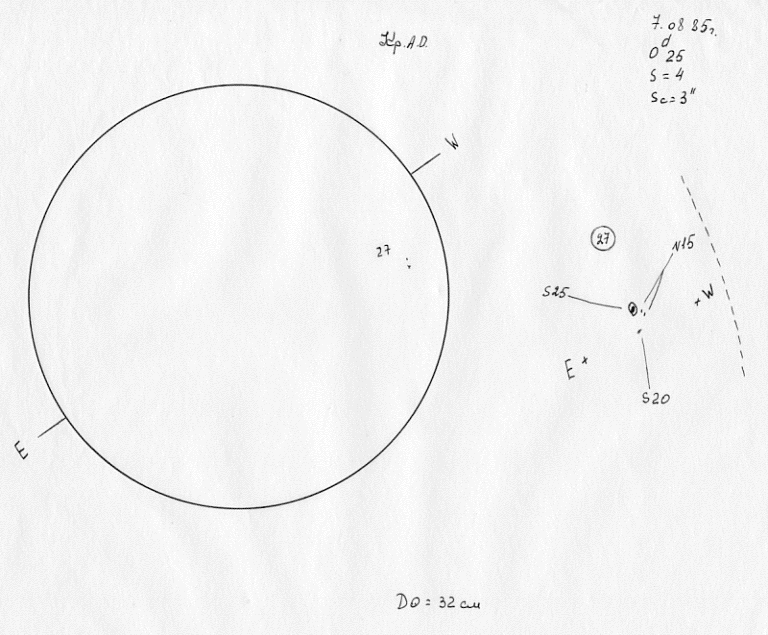 Кр.А.О.
7.08 85г.
0ᵈ25
S = 4
Sc = 3"
W
27
27
N15
S25
W
E
S20
E
D⊙ = 32 см